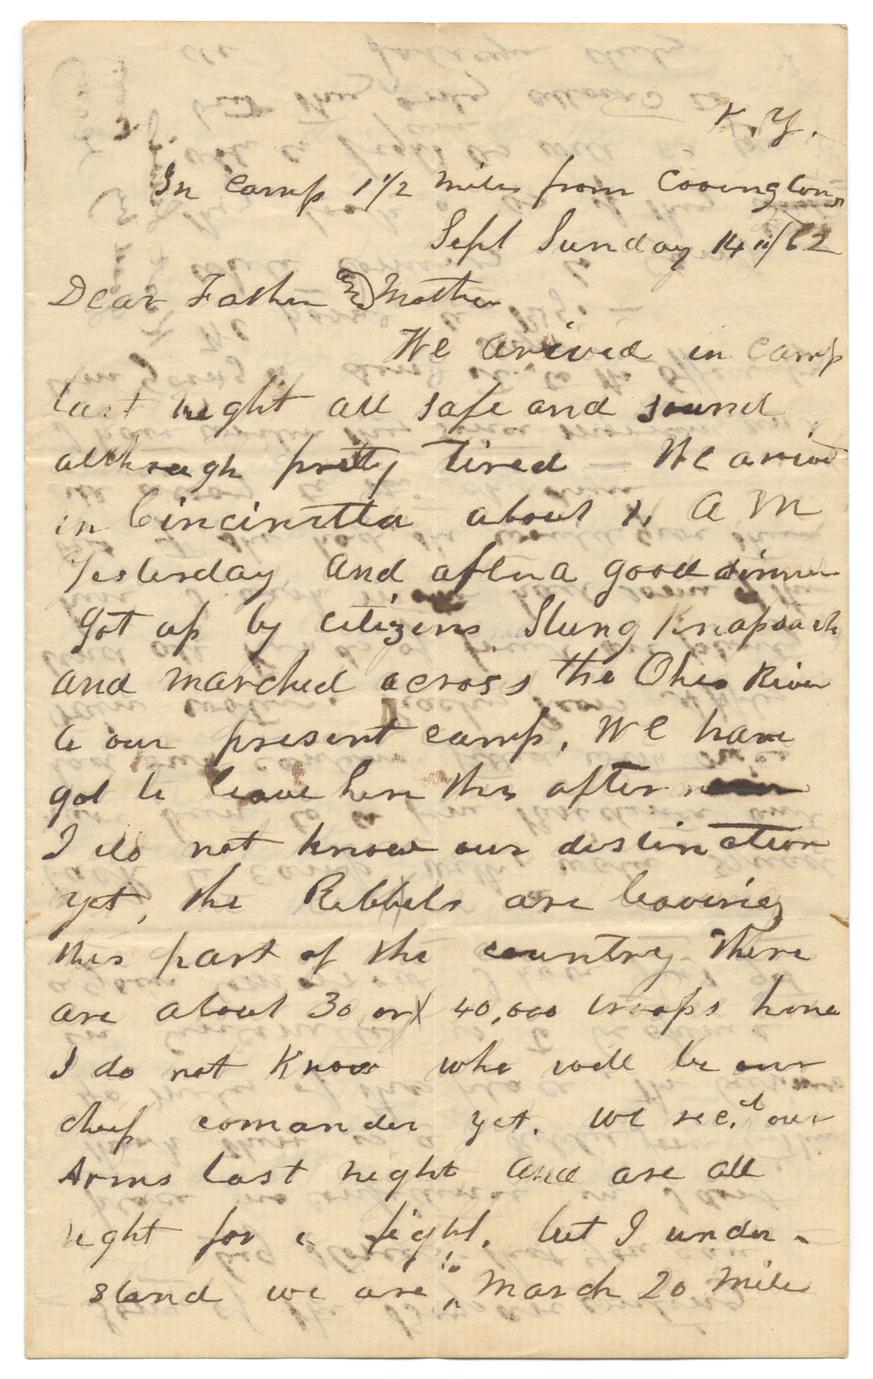 K.Y.
In camp 1 1/2 miles from Covington
Sept Sunday 14th/62
Dear Father and Mother
We arived in camp
last night all safe and sound
although pretty tired — We arived
in Cincinatta about A M
Yesterday and after a good dinner
got up by citizens Slung Knapsack
and marched across the Ohio River
to our present camp, We have
got to leave here this after noon
I do not know our destination
yet, the Rebbels are leaving
this part of the country There
are about 30 or 40,000 troops here
I do not Know who will be our
chief comander yet. We rec.d our
Arms last night and are all
right for a fight, but I under-
stand we are to March 20 Miles